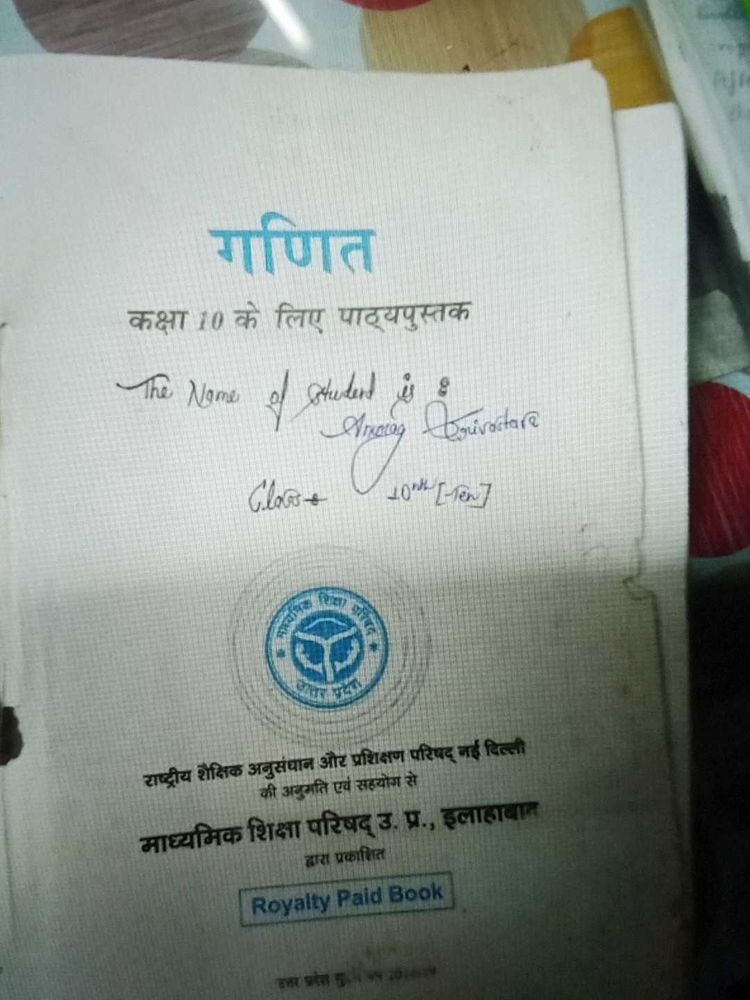 गणित
कक्षा 10 के लिए पाठ्यपुस्तक
The Name of Student is :
Anurag Srivastava
Class 10nth [Ten]
माध्यमिक शिक्षा परिषद्
उत्तर प्रदेश
राष्ट्रीय शैक्षिक अनुसंधान और प्रशिक्षण परिषद् नई दिल्ली
की अनुमति एवं सहयोग से
माध्यमिक शिक्षा परिषद् उ. प्र., इलाहाबाद
द्वारा प्रकाशित
Royalty Paid Book
उत्तर प्रदेश